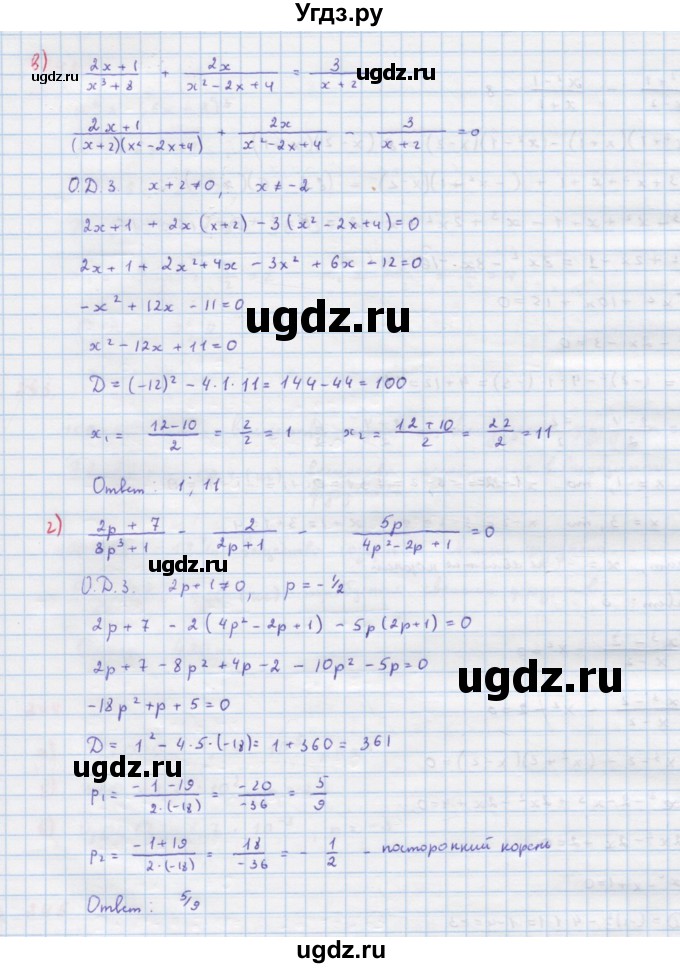 Угдз.ру
в) (2x + 1)/(x³ + 8) + 2x/(x² – 2x + 4) = 3/(x + 2)
ugdz.ru ugdz.ru ugdz.ru
(2x + 1)/((x + 2)(x² – 2x + 4)) + 2x/(x² – 2x + 4) – 3/(x + 2) = 0
О.Д.З. x + 2 ≠ 0, x ≠ – 2
2x + 1 + 2x (x + 2) – 3 (x² – 2x + 4) = 0
2x + 1 + 2x² + 4x – 3x² + 6x – 12 = 0
– x² + 12x – 11 = 0
ugdz.ru
x² – 12x + 11 = 0
D = (–12)² – 4·1·11 = 144 – 44 = 100
x₁ = (12 – 10)/2 = 2/2 = 1 x₂ = (12 + 10)/2 = 22/2 = 11
Ответ: 1; 11
г) (2p + 7)/(8p³ + 1) – 2/(2p + 1) – 5p/(4p² – 2p + 1) = 0
ugdz.ru
О.Д.З. 2p + 1 ≠ 0, p = – 1/2
2p + 7 – 2 (4p² – 2p + 1) – 5p (2p + 1) = 0
2p + 7 – 8p² + 4p – 2 – 10p² – 5p = 0
ugdz.ru
–18p² + p + 5 = 0
D = 1² – 4·5·(–18) = 1 + 360 = 361
ugdz.ru
p₁ = (– 1 – 19)/(2·(–18)) = –20/–36 = 5/9
p₂ = (– 1 + 19)/(2·(–18)) = 18/–36 = – 1/2 – посторонний корень
Ответ: 5/9
ugdz.ru